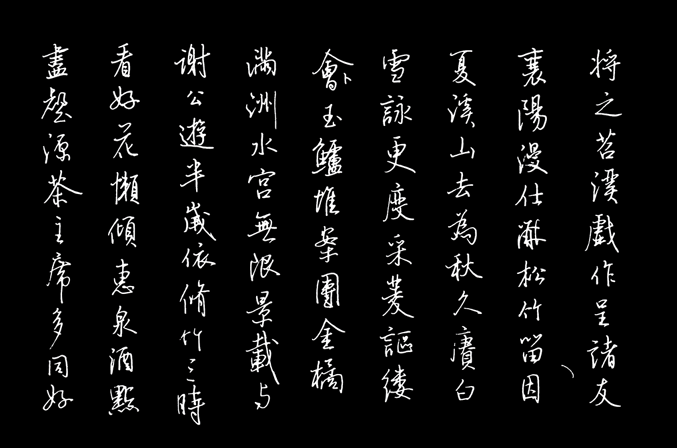 將之苕溪戲作呈諸友
襄陽漫仕黻松竹留因
夏溪山去為秋久賡白
雪詠更度采菱謳縷
會玉鱸堆案團金橘
滿洲水宮無限景載与
謝公遊半歲依脩竹三時
看好花懶傾惠泉酒點
盡壑源茶主席多同好